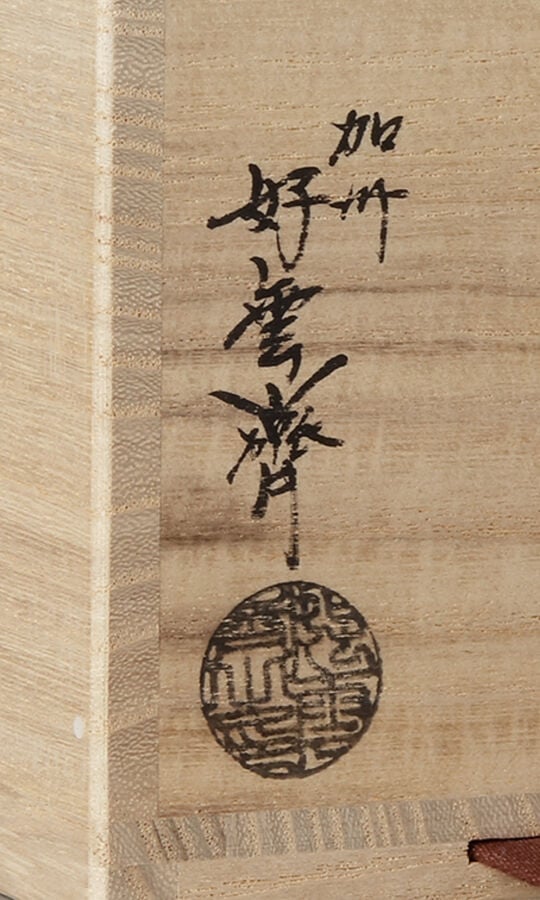 加州
好雲齋